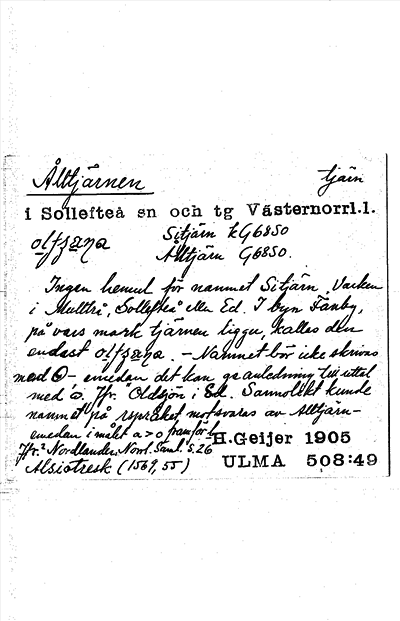 Åltjärnen tjärn
i Sollefteå sn och tg Västernorrl.l.
Sitjärn kG6850
olfsąna Ålltjärn G6850.
Ingen hemul för namnet Sitjärn, varken
i Multrå, Sollefteå eller Ed. I byn Fanby,
på vars mark tjärnen ligger, kallas den
endast olfsąna. – Namnet bör icke skrivas
med O – emedan det kan ge anledning till uttal
med o. Jfr. Oldsjön i Ed. Sannolikt kunde
namnet på rspråket motsvaras av Alltjärn –
emedan i målet a>o framför l
H.Geijer 1905
Jfr. Nordlander, Norrl. Saml. s. 26
Alsiotresk (1569, 55)
ULMA 508:49